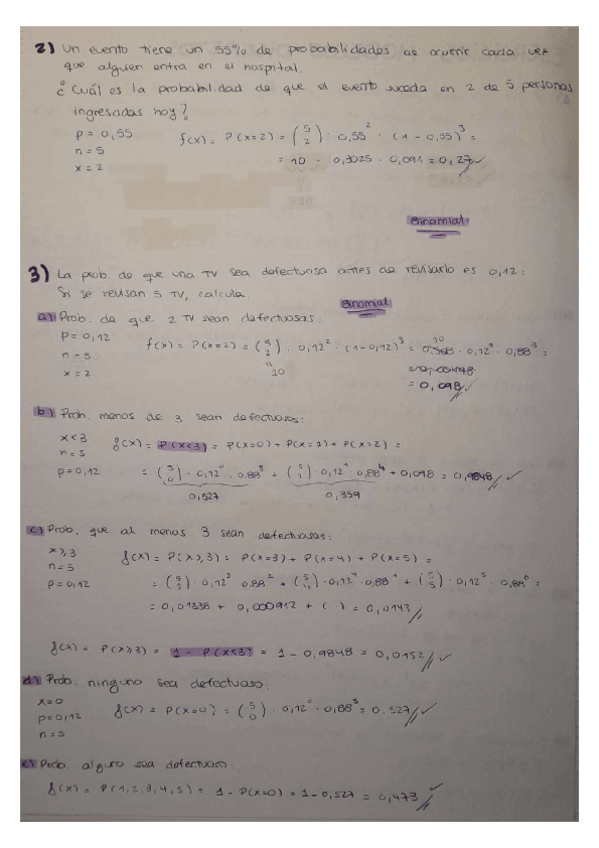 2) Un evento tiene un 55% de probabilidades de ocurrir cada vez
que alguien entra en el hospital.
¿Cuál es la probabilidad de que el evento suceda en 2 de 5 personas
ingresadas hoy?
p = 0,55
n = 5
x = 2
f(x) = P(x=2) = (5 2) · 0,55² · (1 - 0,55)³ =
= 10 · 0,3025 · 0,091 = 0,27 // ✓
Binomial
3) La prob. de que una TV sea defectuosa antes de revisarlo es 0,12:
Si se revisan 5 TV, calcula.
Binomial
a) Prob. de que 2 TV sean defectuosas:
P = 0,12
n = 5
x = 2
f(x) = P(x=2) = (5 2) · 0,12² · (1-0,12)³ = 10 · 0,12² · 0,88³ =
10
= 0,098 // ✓
b) Prob. menos de 3 sean defectuosos:
x < 3
n = 5
p = 0,12
f(x) = P(x<3) = P(x=0) + P(x=1) + P(x=2) =
= (5 0) · 0,12⁰ · 0,88⁵ + (5 1) · 0,12¹ · 0,88⁴ + 0,098 = 0,9848 // ✓
0,527 0,359
c) Prob. que al menos 3 sean defectuosas:
x ≥ 3
n = 5
p = 0,12
f(x) = P(x≥3) = P(x=3) + P(x=4) + P(x=5) =
= (5 3) · 0,12³ · 0,88² + (5 4) · 0,12⁴ · 0,88¹ + (5 5) · 0,12⁵ · 0,88⁰ =
= 0,01338 + 0,000912 + ( · ) = 0,0143 //
f(x) = P(x≥3) = 1 - P(x<3) = 1 - 0,9848 = 0,0152 // ✓
d) Prob. ninguno sea defectuoso:
x=0
p=0,12
n=5
f(x) = P(x=0) = (5 0) · 0,12⁰ · 0,88⁵ = 0.527 // ✓
e) Prob. alguno sea defectuoso:
f(x) = P(1,2,3,4,5) = 1 - P(x=0) = 1 - 0,527 = 0,473 // ✓